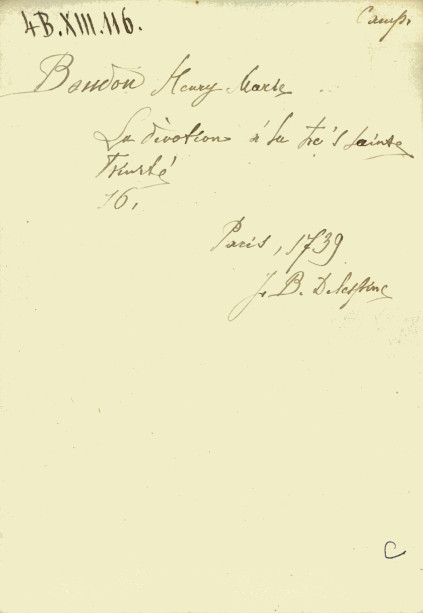 4B.XIII.116.
Camp.
Boudon Henry Marie
La dévotion à la très sainte
Trinité
16.
Paris, 1739
J. B. Delespine
C